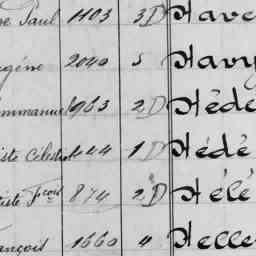 e Paul 1103 3 D Have
gène 2040 5 Havy
mmanuel 1963 2 D Hédé
iste Célest 144 1 D Hédé
tiste Fcois 874 2 D Hélé
ançois 1660 4 Helle